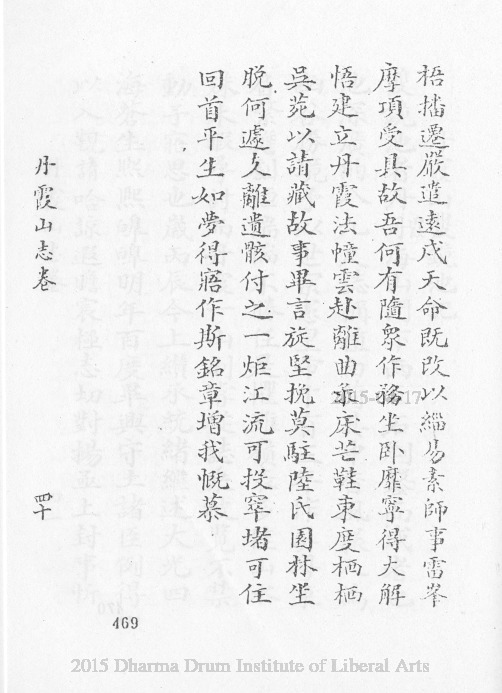 梧播遷嚴遣遠戍天命既改以緇易素師事雷峯
摩頂受具故吾何有隨衆作務坐卧靡寧得大解
悟建立丹霞法幢雲赴離曲彔床芒鞋東度栖栖
吳苑以請藏故事畢言旋堅挽莫駐陸氏園林坐
脫何遽久離遺骸付之一炬江流可投窣堵可住
回首平生如夢得寤作斯銘章增我慨慕
丹霞山志卷
四十
469
2015 Dharma Drum Institute of Liberal Arts